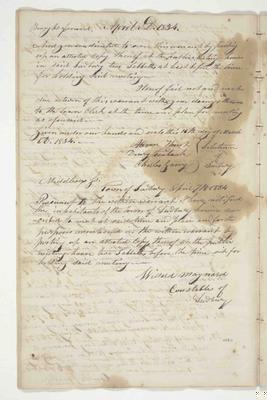 April 2d 1834.
And you are directed to serve this warrant by posting
up an attested copy thereof at the public meeting house
in said Sudbury two Sabbaths at least before the time
for holding said meeting.
Hereof fail not and make
due return of this warrant with your doings thereon
to the Town Clerk at the time and place for meeting
as aforesaid.
Given under our hands and seals this 14th day of March
AD. 1834.
Hunt Selectmen
of
Sudbury
Middlesex Ss. Town of Sudbury April 7th 1834
Pursuant to the within warrant I have notified
the inhabitants of the town of Sudbury herein
to meet at the time and place and for the
purposes mentioned in the within warrant by
posting up an attested copy thereof on the public
meeting house two Sabbaths before the time set for
holding said meeting
Willard Maynard
Constable of
Sudbury